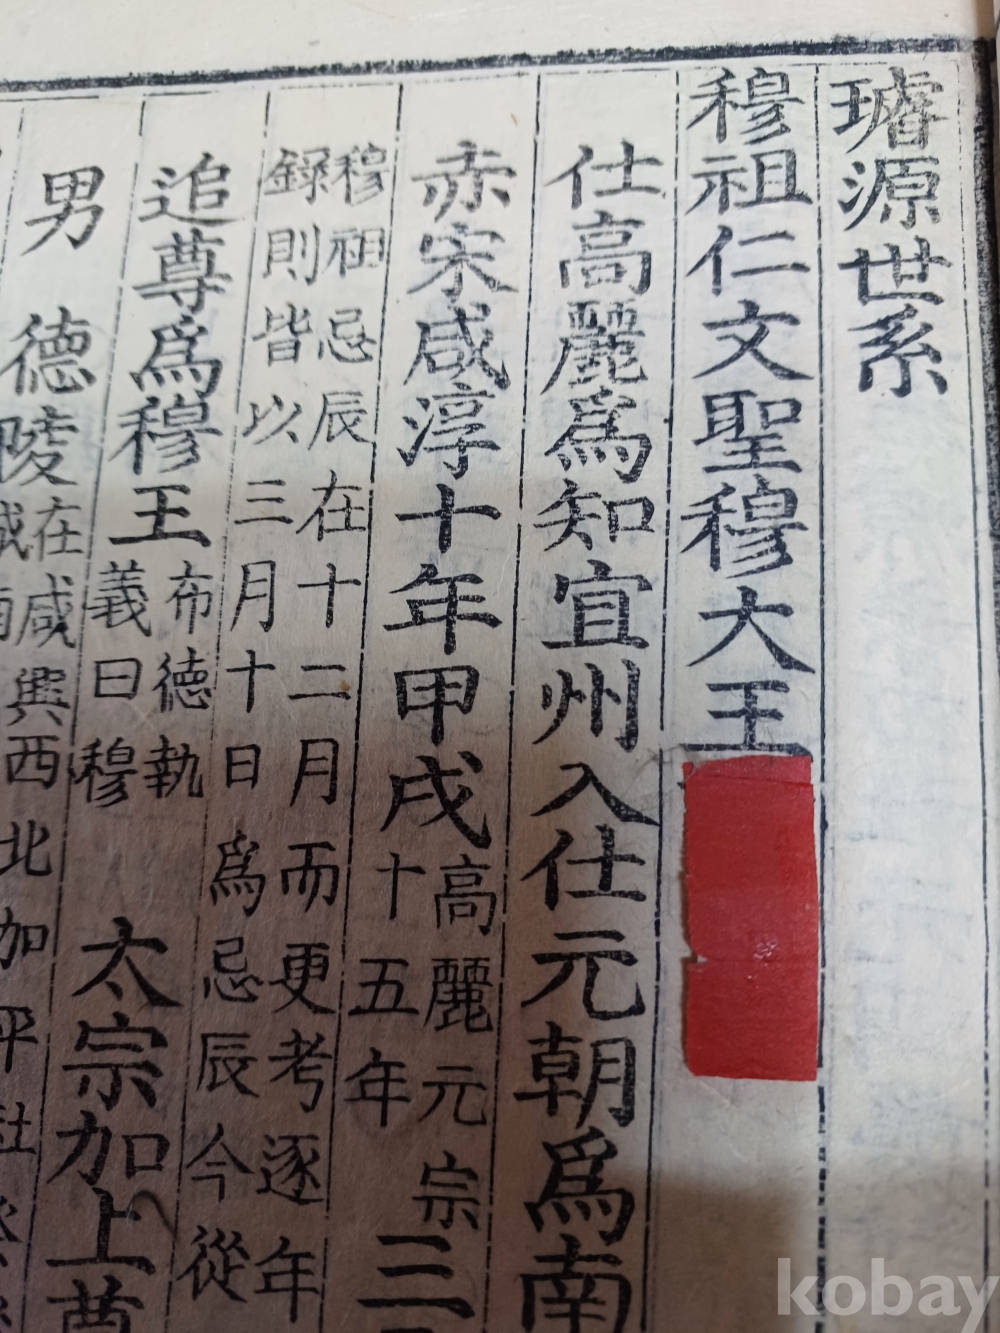 璿源世系
穆祖仁文聖穆大王
仕高麗爲知宜州入仕元朝爲南
赤宋咸淳十年甲戌高麗元宗十五年三
穆祖忌辰在十二月而更考逐年
錄則皆以三月十日爲忌辰今從
追尊爲穆王布德執義曰穆 太宗加上
男 德陵在咸興西北加平社
kobay